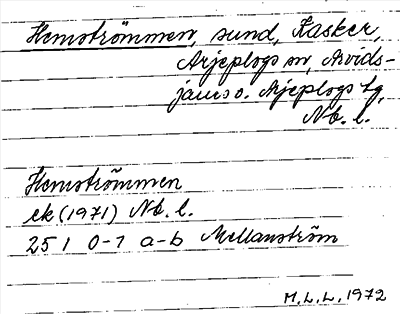 Hemströmmen, sund, Kasker,
Arjeplogs sn, Arvids-
jaurs o. Arjeplogs tg,
Nb. l.
Hemströmmen
ek (1971) Nb. l.
25 I 0-1 a-b Mellanström
M.L.L. 1972